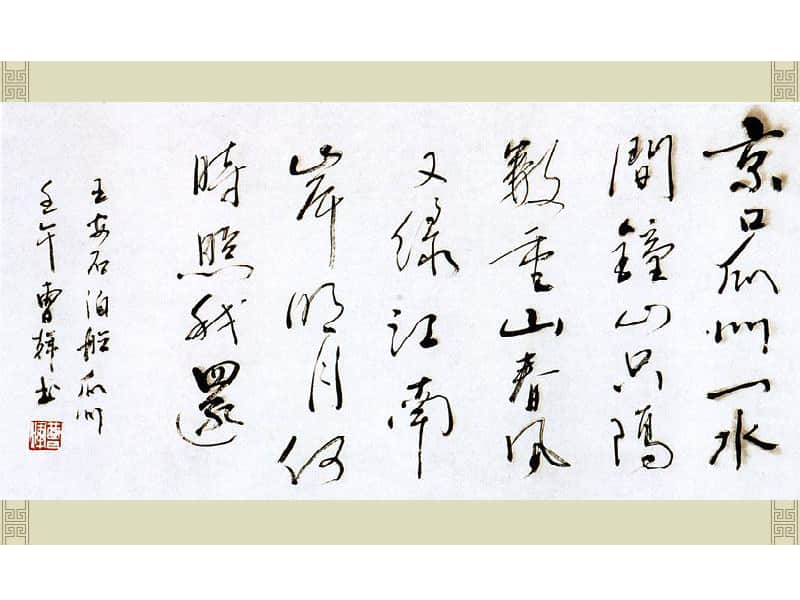 京口瓜洲一水
間鐘山只隔
數重山春風
又綠江南
岸明月何
時照我還
王安石泊船瓜州
壬午曹輝書